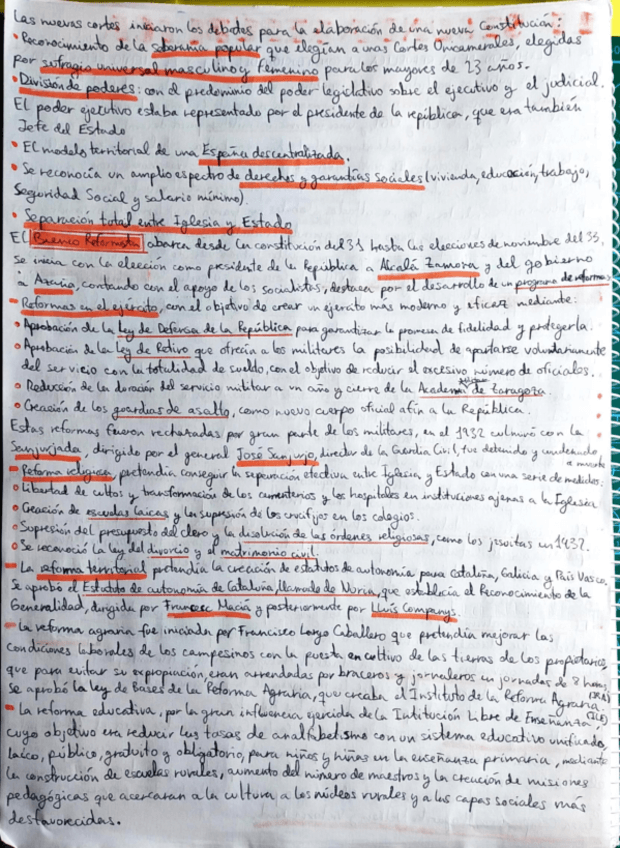 Las nuevas cortes iniciaron los debates para la elaboración de una nueva Constitución:
• Reconocimiento de la soberanía popular que elegían a unas Cortes Unicamerales, elegidas
por sufragio universal masculino y femenino para los mayores de 23 años.
• División de poderes: con el predominio del poder legislativo sobre el ejecutivo y el judicial.
El poder ejecutivo estaba representado por el presidente de la república, que era también
Jefe del Estado
• El modelo territorial de una España descentralizada.
• Se reconocía un amplio espectro de derechos y garantías sociales (vivienda, educación, trabajo,
Seguridad Social y salario mínimo).
• Separación total entre Iglesia y Estado
El Bienio Reformista abarca desde la constitución del 31 hasta las elecciones de noviembre del 33.
Se inicia con la elección como presidente de la República a Alcalá Zamora y del gobierno
a Azaña, contando con el apoyo de los socialistas, destaca por el desarrollo de un programa de reformas
- Reformas en el ejército, con el objetivo de crear un ejército más moderno y eficaz mediante:
• Aprobación de la Ley de Defensa de la República para garantizar la promesa de fidelidad y protegerla.
• Aprobación de la Ley de Retiro que ofrecía a los militares la posibilidad de apartarse voluntariamente
del servicio con la totalidad de sueldo, con el objetivo de reducir el excesivo número de oficiales.
• Reducción de la duración del servicio militar a un año y cierre de la Academia de Zaragoza.
• Creación de los guardias de asalto, como nuevo cuerpo oficial afín a la República.
Estas reformas fueron rechazadas por gran parte de los militares, en el 1932 culminó con la
Sanjurjada, dirigido por el general José Sanjurjo, director de la Guardia Civil, fue detenido y condenado
a muerte
- Reforma religiosa, pretendía conseguir la separación efectiva entre Iglesia y Estado con una serie de medidas:
• Libertad de cultos y transformación de los cementerios y los hospitales en instituciones ajenas a la Iglesia
• Creación de escuelas laicas y la supresión de los crucifijos en los colegios.
• Supresión del presupuesto del clero y la disolución de las órdenes religiosas, como los jesuitas en 1932.
• Se reconoció la ley del divorcio y el matrimonio civil.
- La reforma territorial pretendía la creación de estatutos de autonomía para Cataluña, Galicia y País Vasco.
Se aprobó el Estatuto de autonomía de Cataluña, llamado de Nuria, que establecía el Reconocimiento de la
Generalidad, dirigida por Francesc Macià y posteriormente por Lluís Companys.
- La reforma agraria fue iniciada por Francisco Largo Caballero que pretendía mejorar las
condiciones laborales de los campesinos con la puesta en cultivo de las tierras de los propietarios,
que para evitar su expropiación, eran arrendadas por braceros y jornaleros en jornadas de 8 horas.
Se aprobó la Ley de Bases de la Reforma Agraria, que creaba el Instituto de la Reforma Agraria (IRA)
- La reforma educativa, por la gran influencia ejercida de la Intitución Libre de Enseñanza (ILE)
cuyo objetivo era reducir las tasas de analfabetismo con un sistema educativo unificado,
laico, público, gratuito y obligatorio, para niños y niñas en la enseñanza primaria, mediante
la construcción de escuelas rurales, aumento del número de maestros y la creación de misiones
pedagógicas que acercaran a la cultura a los núcleos rurales y a las capas sociales más
desfavorecidas.